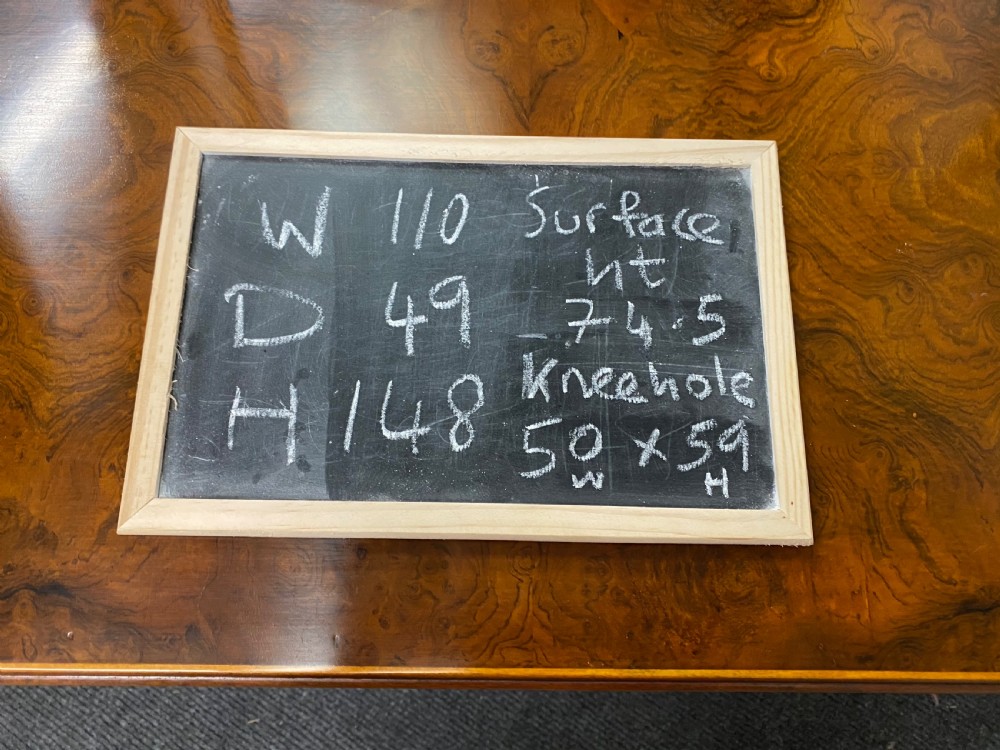 W 110
D 49
H 148
Surface
ht
74.5
Kneehole
50 x 59
W H